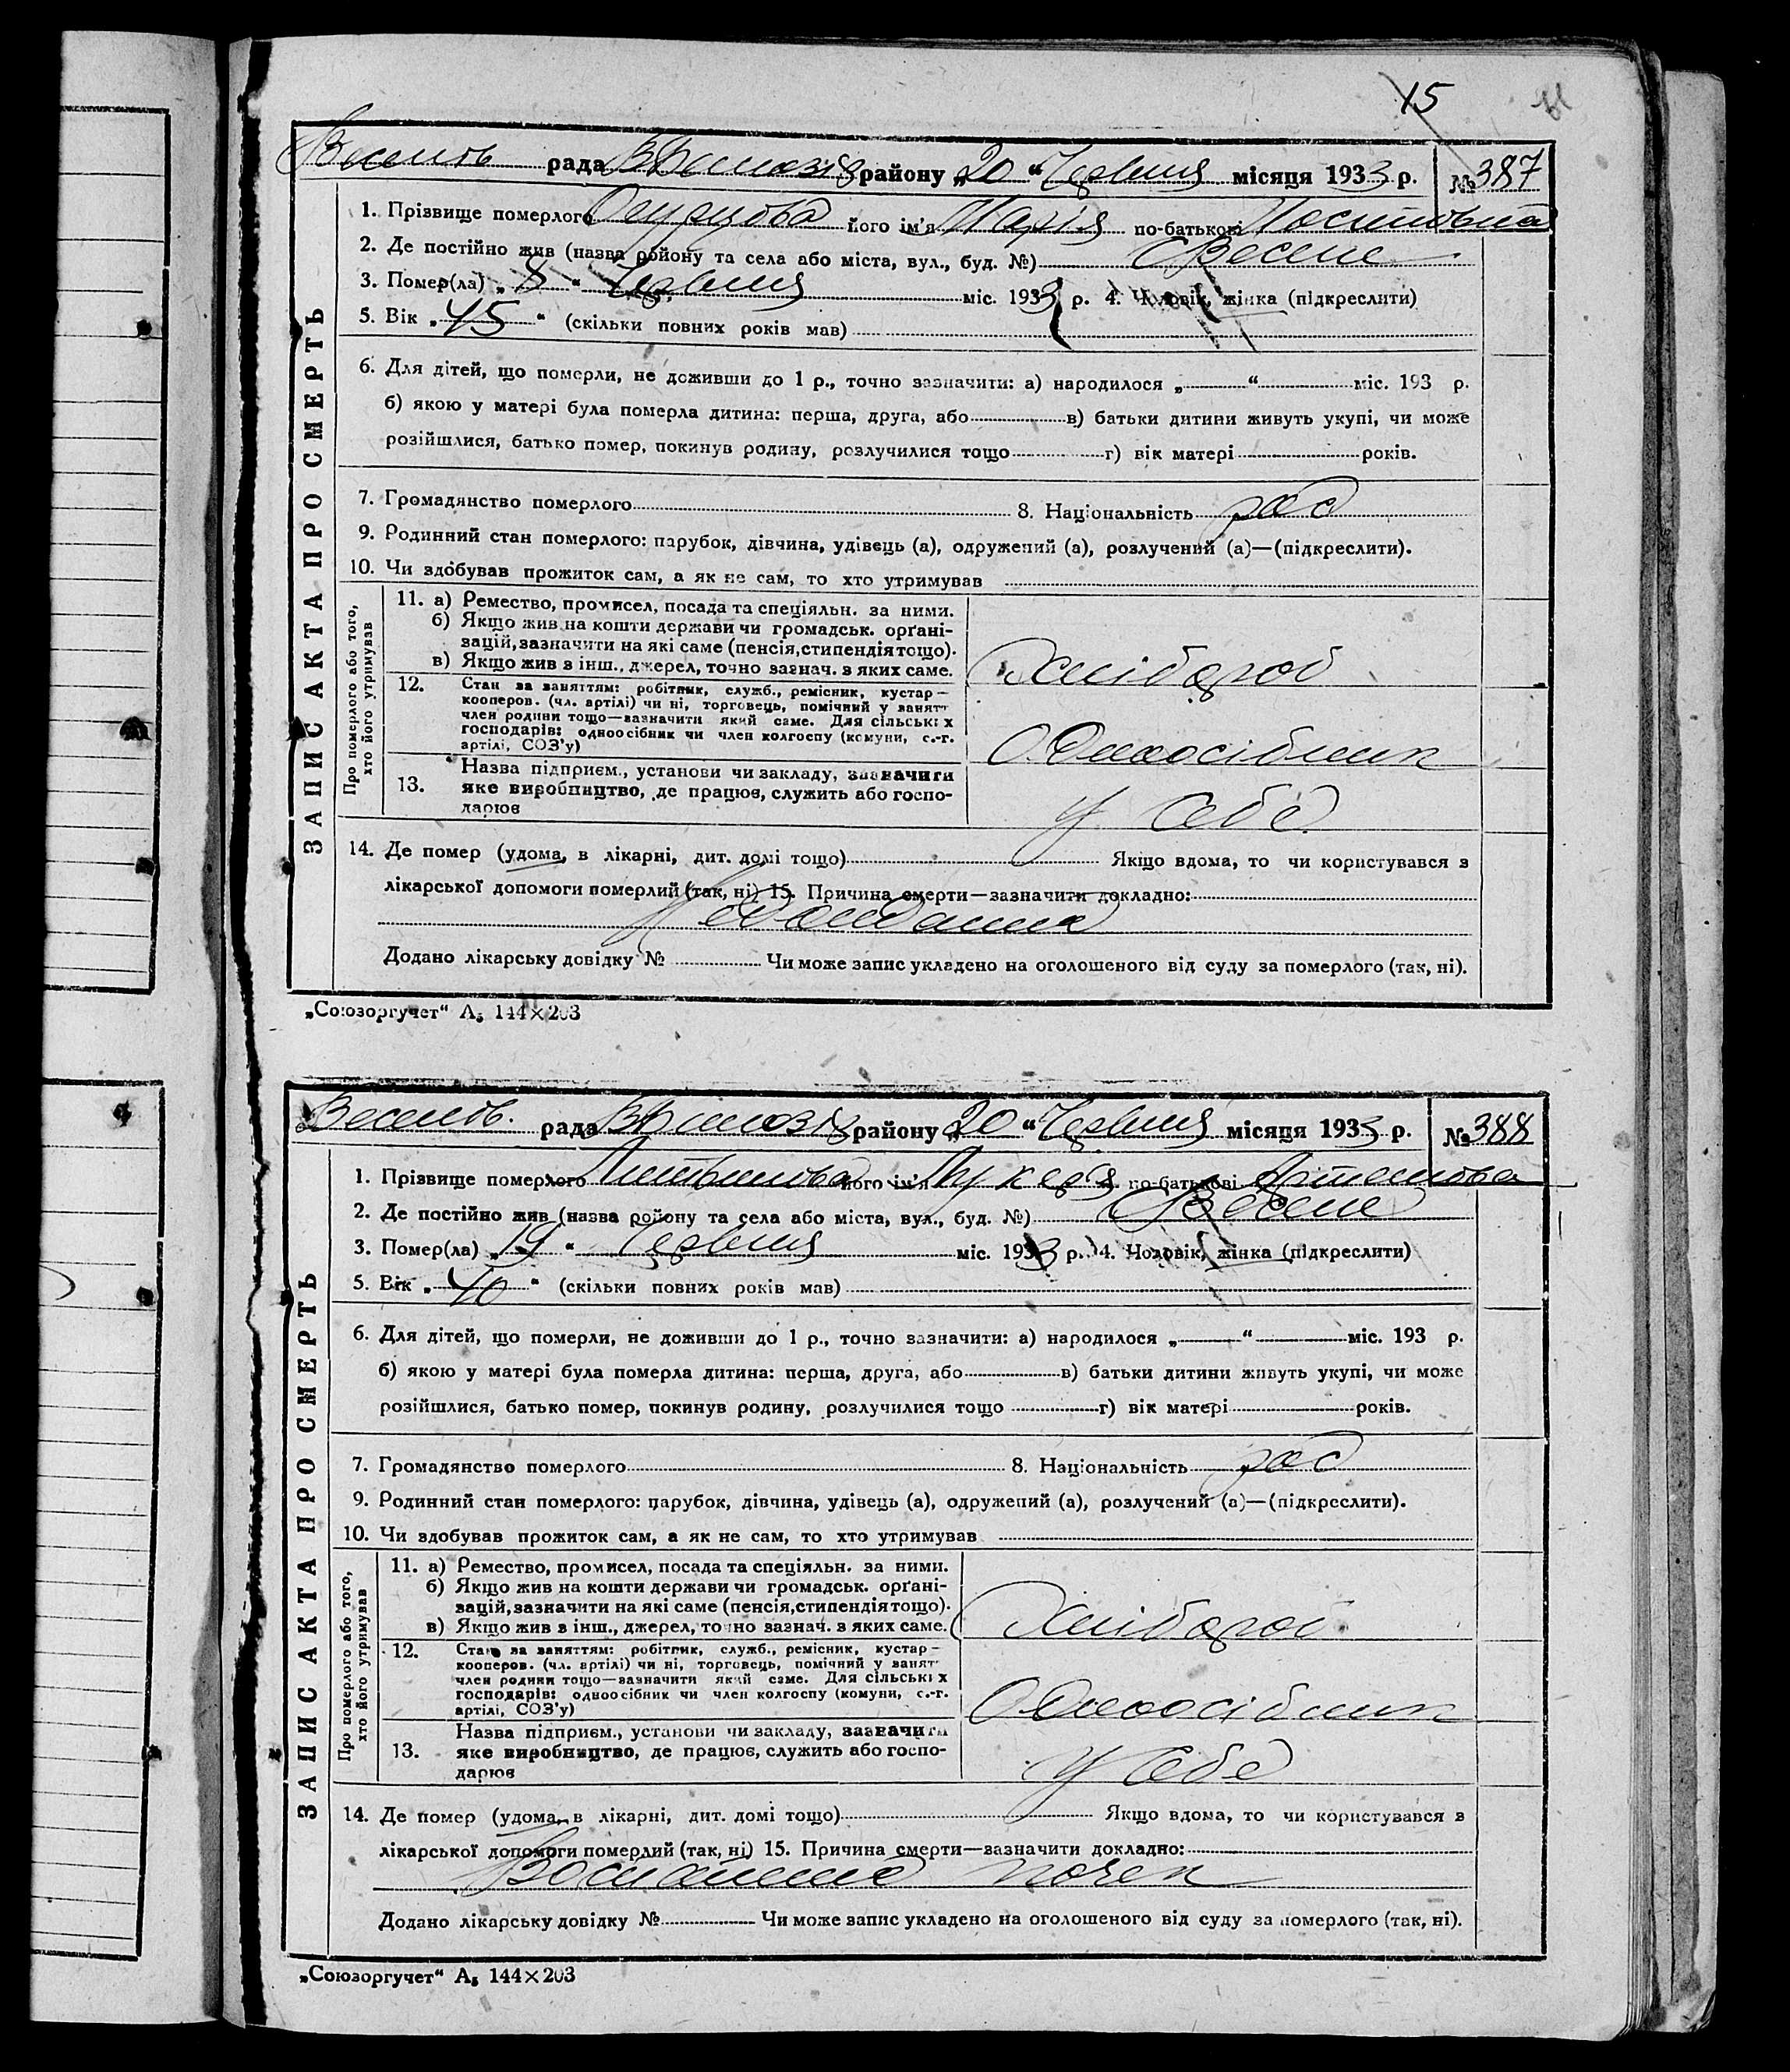 15
Весенів рада районy „20“ Червня місяця 1933 р. № 387
1. Прізвище померлого його ім'я Марія по-батькові
2. Де постійно жив (назва району та села або міста, вул., буд. №) Веселе
3. Помер(ла) „8“ Червня міс. 1933 р. 4. Чоловік, жінка (підкреслити)
5. Вік „45“ (скільки повних років мав)
6. Для дітей, що померли, не доживши до 1 р., точно зазначити: а) народилося „ “ міс. 193 р.
б) якою у матері була померла дитина: перша, друга, або в) батьки дитини живуть укупі, чи може
розійшлися, батько помер, покинув родину, розлучилися тощо г) вік матері років.
7. Громадянство померлого 8. Національність рос
9. Родинний стан померлого: парубок, дівчина, удівець (а), одружений (а), розлучений (а)—(підкреслити).
10. Чи здобував прожиток сам, а як не сам, то хто утримував
ЗАПИС АКТА ПРО СМЕРТЬ
Про померлого або того,
хто його утримував
11. а) Ремество, промисел, посада та спеціяльн. за ними.
б) Якщо жив на кошти держави чи громадськ. органі-
зацій, зазначити на які саме (пенсія, стипендія тощо).
в) Якщо жив з інш., джерел, точно зазнач. з яких саме.
Хлібороб
12. Стан за заняттям: робітник, служб., ремісник, кустар—
кооперов. (чл. артілі) чи ні, торговець, помічний у занятт
член родини тощо—зазначити який саме. Для сільських
господарів: одноосібник чи член колгоспу (комуни, с.-г.
артілі, СОЗ'у)
Одноосібник
13. Назва підприєм., установи чи закладу, зазначити
яке виробництво, де працює, служить або госпо-
дарює
У себе
14. Де помер (удома, в лікарні, дит. домі тощо) Якщо вдома, то чи користувався з
лікарської допомоги померлий (так, ні) 15. Причина смерти—зазначити докладно:
Недоїдання
Додано лікарську довідку № Чи може запис укладено на оголошеного від суду за померлого (так, ні).
„Союзоргучет“ А₅ 144×203
Весенів. рада району „20“ Червня місяця 1933 р. № 388
1. Прізвище померлого Литвинова його ім'я Лукерія по-батькові Артемовна
2. Де постійно жив (назва району та села або міста, вул., буд. №) Веселе
3. Помер(ла) „19“ Червня міс. 1933 р. 4. Чоловік, жінка (підкреслити)
5. Вік „40“ (скільки повних років мав)
6. Для дітей, що померли, не доживши до 1 р., точно зазначити: а) народилося „ “ міс. 193 р.
б) якою у матері була померла дитина: перша, друга, або в) батьки дитини живуть укупі, чи може
розійшлися, батько помер, покинув родину, розлучилися тощо г) вік матері років.
7. Громадянство померлого 8. Національність рос
9. Родинний стан померлого: парубок, дівчина, удівець (а), одружений (а), розлучений (а)—(підкреслити).
10. Чи здобував прожиток сам, а як не сам, то хто утримував
ЗАПИС АКТА ПРО СМЕРТЬ
Про померлого або того,
хто його утримував
11. а) Ремество, промисел, посада та спеціяльн. за ними.
б) Якщо жив на кошти держави чи громадськ. органі-
зацій, зазначити на які саме (пенсія, стипендія тощо).
в) Якщо жив з інш., джерел, точно зазнач. з яких саме.
Хлібороб
12. Стан за заняттям: робітник, служб., ремісник, кустар—
кооперов. (чл. артілі) чи ні, торговець, помічний у занят
член родини тощо—зазначити який саме. Для сільських
господарів: одноосібник чи член колгоспу (комуни, с.-г.
артілі, СОЗ'у)
Одноосібник
13. Назва підприєм., установи чи закладу, зазначити
яке виробництво, де працює, служить або госпо-
дарює
У себе
14. Де помер (удома, в лікарні, дит. домі тощо) Якщо вдома, то чи користувався з
лікарської допомоги померлий (так, ні) 15. Причина смерти—зазначити докладно:
Воспаление почек
Додано лікарську довідку № Чи може запис укладено на оголошеного від суду за померлого (так, ні).
„Союзоргучет“ А₅ 144×203